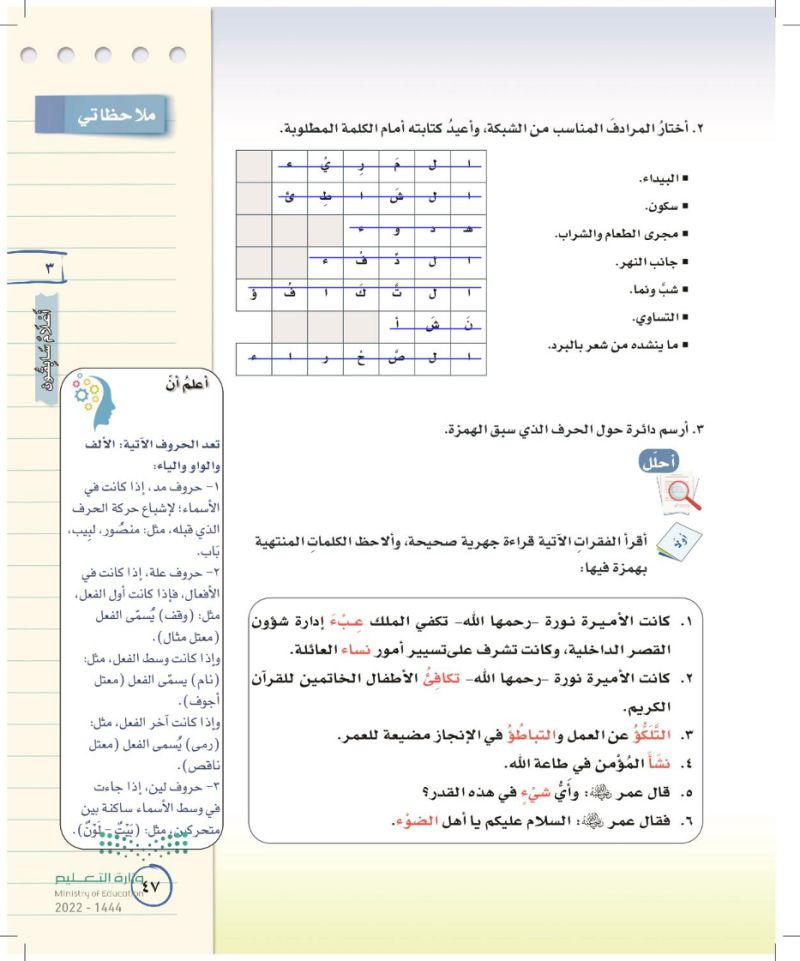 ملاحظاتي
٢. أختارُ المرادفَ المناسب من الشبكة، وأعيدُ كتابته أمام الكلمة المطلوبة.
▪ البيداء.
▪ سكون.
▪ مجرى الطعام والشراب.
▪ جانب النهر.
▪ شبَّ ونما.
▪ التساوي.
▪ ما ينشده من شعر بالبرد.
ا ل مَ رِ يْ ء
ا ل شَ ا طِ ئ
هـ د و ء
ا ل دِّ فْ ء
ا ل تَّ كَ ا فُ ؤ
نَ شَ أ
ا ل صَّ حْ ر ا ء
٣
أَعْلَامٌ سَابِقُون
٣. أرسم دائرة حول الحرف الذي سبق الهمزة.
أحلّل
أولًا
أقرأ الفقراتِ الآتية قراءة جهرية صحيحة، وألاحظ الكلماتِ المنتهية
بهمزة فيها:
١. كانت الأميرة نورة -رحمها الله- تكفي الملك عِـبْءَ إدارة شؤون
القصر الداخلية، وكانت تشرف على تسيير أمور نساء العائلة.
٢. كانت الأميرة نورة -رحمها الله- تكافِئُ الأطفال الخاتمين للقرآن
الكريم.
٣. التَّلَكُّؤُ عن العمل والتباطُؤُ في الإنجاز مضيعة للعمر.
٤. نشَأَ المُؤْمن في طاعة الله.
٥. قال عمر رضي الله عنه: وأَيُّ شيْءٍ في هذه القدر؟
٦. فقال عمر رضي الله عنه: السلام عليكم يا أهل الضوْء.
أعلمُ أنّ
تعد الحروف الآتية: الألف
والواو والياء:
١- حروف مد، إذا كانت في
الأسماء؛ لإشباع حركة الحرف
الذي قبله، مثل: منصُور، لبِيب،
بَاب.
٢- حروف علة، إذا كانت في
الأفعال، فإذا كانت أول الفعل،
مثل: (وقف) يُسمّى الفعل
(معتل مثال).
وإذا كانت وسط الفعل، مثل:
(نام) يسمّى الفعل (معتل
أجوف).
وإذا كانت آخر الفعل، مثل:
(رمى) يُسمى الفعل (معتل
ناقص).
٣- حروف لين، إذا جاءت
في وسط الأسماء ساكنة بين
متحركين، مثل: (بَيْتٌ - لَوْنٌ).
وزارة التعـليم
Ministry of Education
2022 - 1444
٤٧